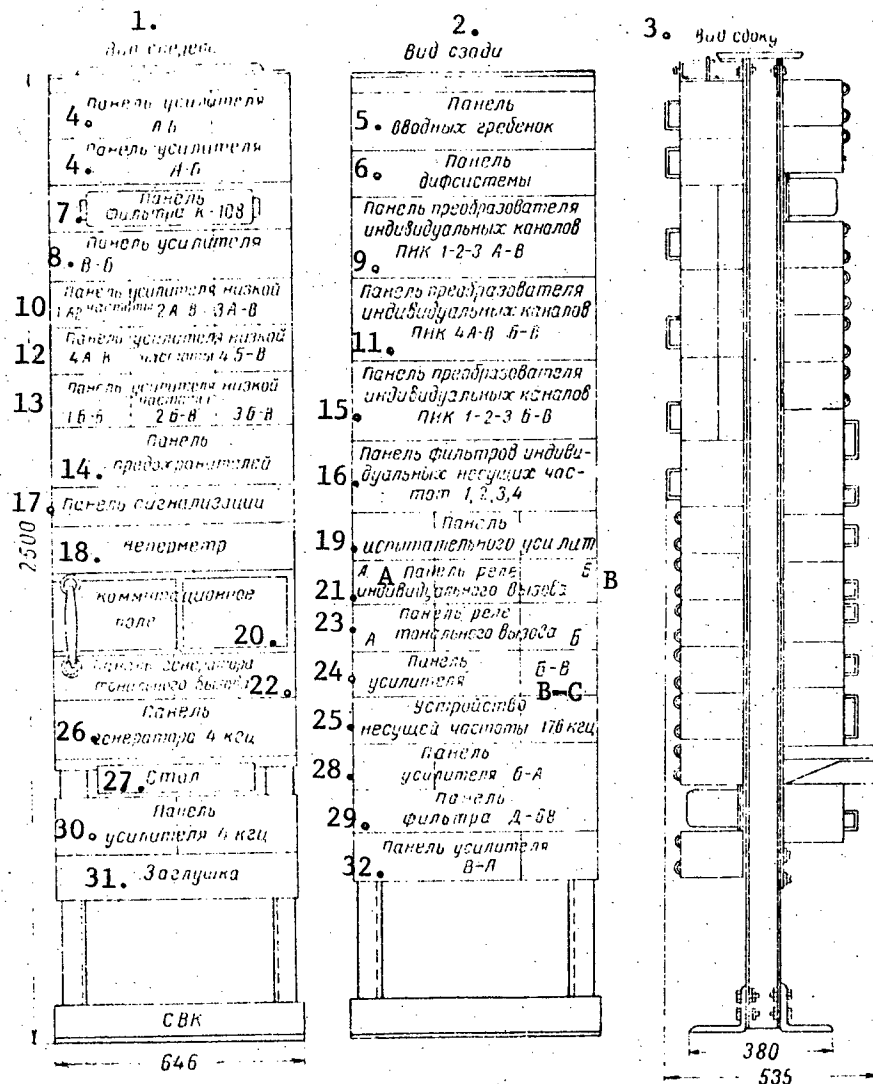 1.
2.
3.
Вид сбоку
Вид сзади
4.
Панель усилителя
А Б
4.
Панель усилителя
А-Б
7.
Панель
фильтра К-108
8.
Панель усилителя
В-Б
10
Панель усилителя низкой
частоты 2А-В 3А-В
12
Панель усилителя низкой
4А В частоты 4Б-В
13
Панель усилителя низкой
частоты
1Б-В 2Б-В 3Б-В
14.
Панель
предохранителей
17
Панель сигнализации
18.
неперметр
коммутационное
поле
20.
Панель генератора
тонального вызова
22.
26.
Панель
генератора 4 кгц
27.
Стол
30.
Панель
усилителя 4 кгц
31.
Заглушка
СВК
2500
646
5.
Панель
вводных гребенок
6.
Панель
дифсистемы
Панель преобразователя
индивидуальных каналов
9
ПНК 1-2-3 А-В
Панель преобразователя
индивидуальных каналов
11.
ПНК 4А-В Б-В
Панель преобразователя
15.
индивидуальных каналов
ПНК 1-2-3 Б-В
16
Панель фильтров индиви-
дуальных несущих час-
тот 1,2,3,4
19
Панель
испытательного усилит
21
А А Панель реле Б В
индивидуального вызова
23
Панель реле
А тонального вызова Б
24
Панель Б-В
усилителя
В-С
25
Устройство
несущей частоты 176 кгц
28
Панель
усилителя Б-А
29
Панель
фильтра Д-68
32
Панель усилителя
В-А
380
535